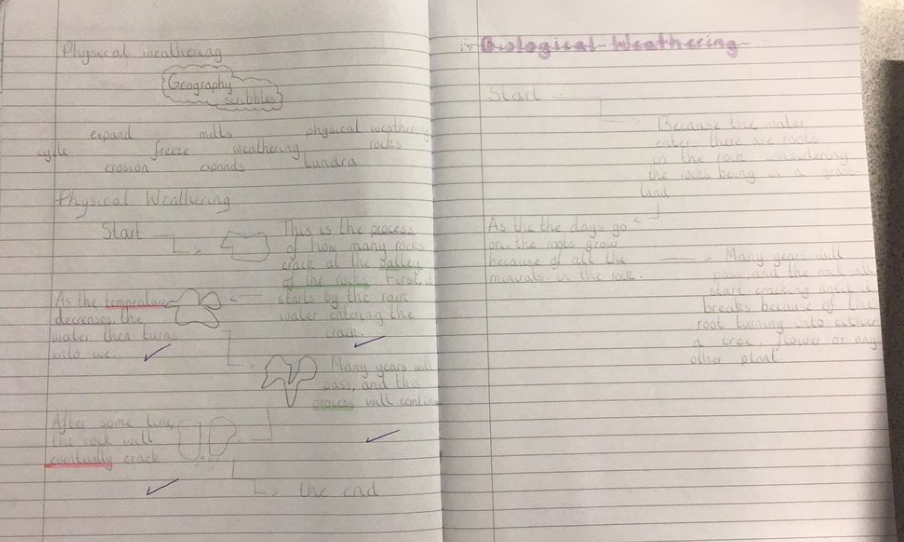 Physical weathering
Geography
scribbles
expand melts physical weathering
cycle freeze weathering rocks
erosion expands tundra
Physical Weathering
Start
This is the process
of how many rocks
crack at the valleys
of the rocks. First
starts by the rain
water entering the
crack.
As the temperature
decreases, the
water then turns
into ice.
Many years will
pass, and this
process will continue
After some time,
the rock will
eventually crack
the end
Biological Weathering
Start
Because the water
enters there are roots
in the rock considering
the rocks being in a
land
As the the days go
on, the roots grow
because of all the
minerals in the
Many years will
pass and the rock will
start cracking until it
breaks because of the
root turning into either
a tree, flower or any
other plant